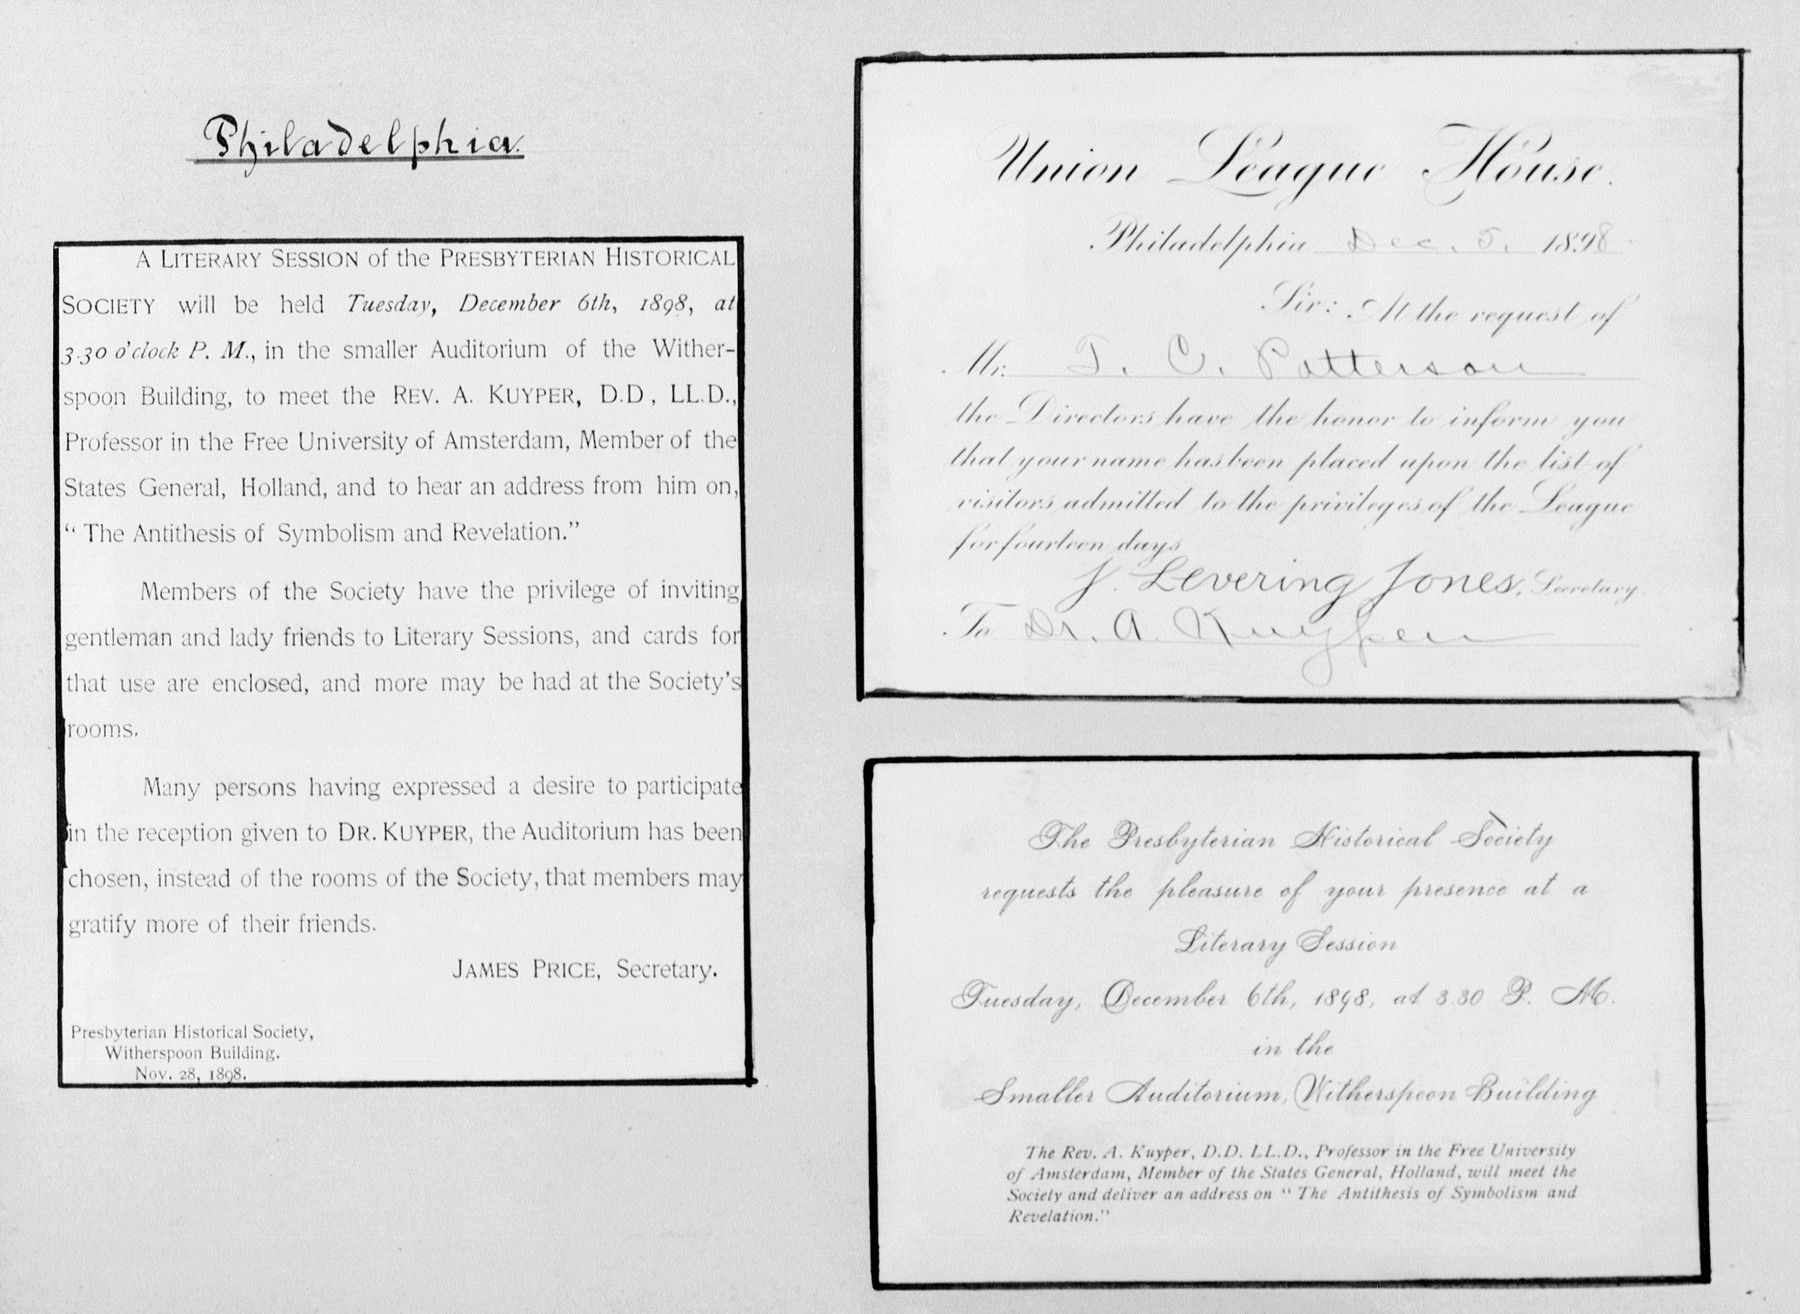 Philadelphia.
A LITERARY SESSION of the PRESBYTERIAN HISTORICAL
SOCIETY will be held Tuesday, December 6th, 1898, at
3.30 o'clock P. M., in the smaller Auditorium of the Wither-
spoon Building, to meet the REV. A. KUYPER, D.D, LL.D.,
Professor in the Free University of Amsterdam, Member of the
States General, Holland, and to hear an address from him on,
“ The Antithesis of Symbolism and Revelation.”
Members of the Society have the privilege of inviting
gentleman and lady friends to Literary Sessions, and cards for
that use are enclosed, and more may be had at the Society's
rooms.
Many persons having expressed a desire to participate
in the reception given to DR. KUYPER, the Auditorium has been
chosen, instead of the rooms of the Society, that members may
gratify more of their friends.
JAMES PRICE, Secretary.
Presbyterian Historical Society,
Witherspoon Building.
Nov. 28, 1898.
Union League House.
Philadelphia Dec. 5. 1898.
Sir: At the request of
Mr. T. C. Patterson
the Directors have the honor to inform you
that your name has been placed upon the list of
visitors admitted to the privileges of the League
for fourteen days
J. Levering Jones, Secretary
To Dr. A. Kuyper
The Presbyterian Historical Society
requests the pleasure of your presence at a
Literary Session
Tuesday, December 6th, 1898, at 3.30 P. M.
in the
Smaller Auditorium, Witherspoon Building
The Rev. A. Kuyper, D.D. LL.D., Professor in the Free University
of Amsterdam, Member of the States General, Holland, will meet the
Society and deliver an address on “ The Antithesis of Symbolism and
Revelation.”